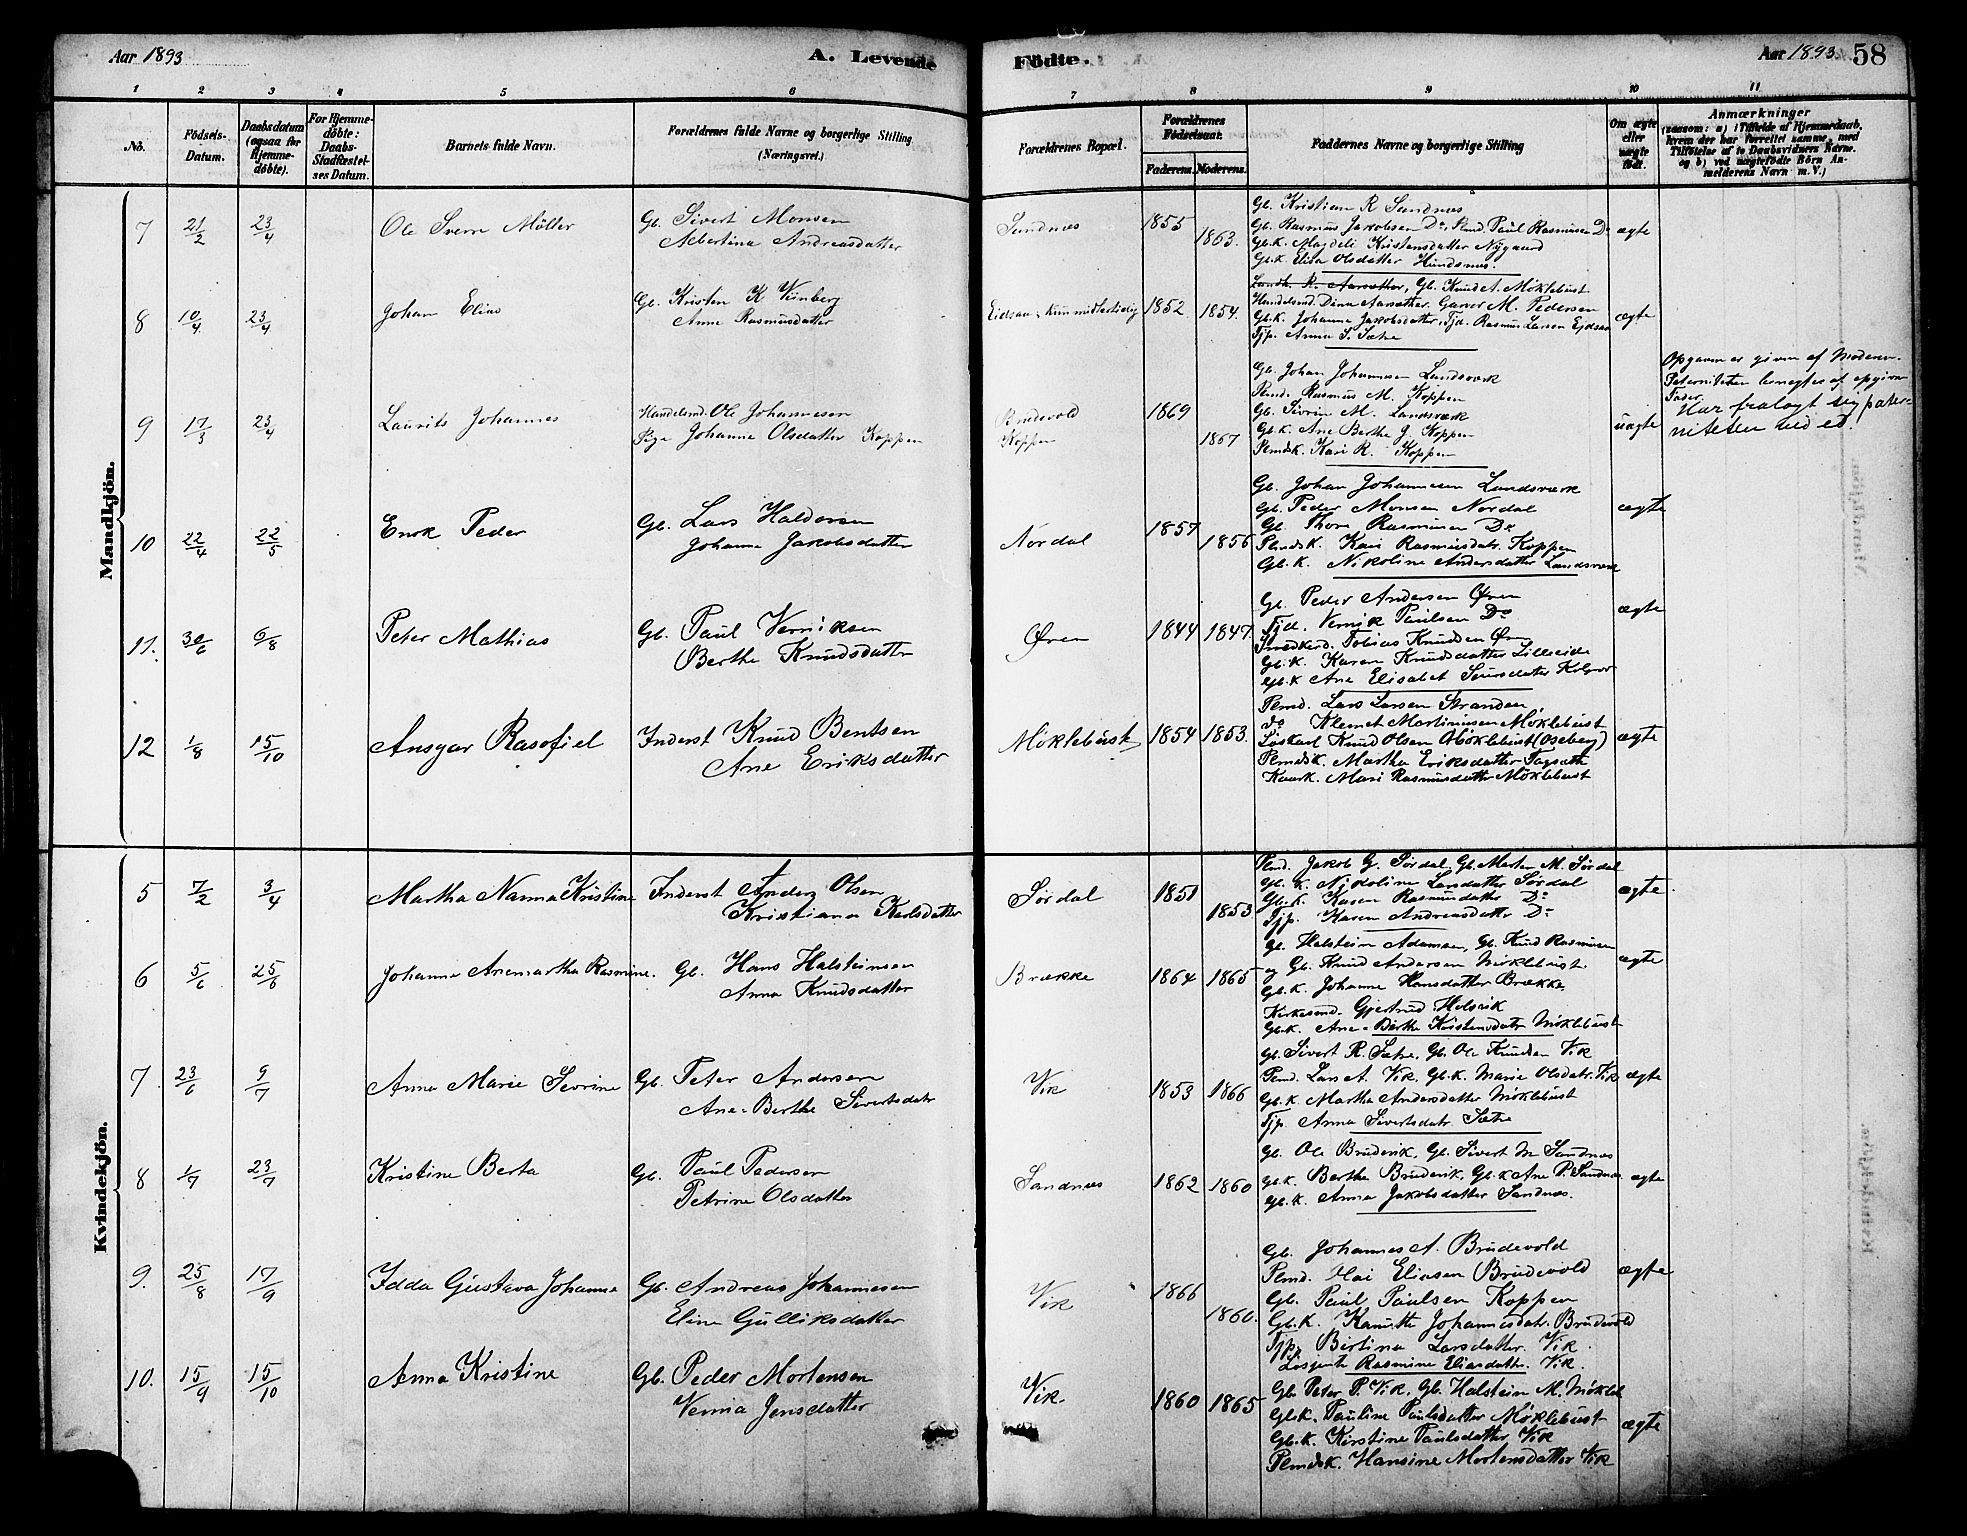 Aar 1893
A. Levende
Fødte.
Aar 1893. 58
1 2 3 4 5 6 7 8 9 10 11
No.
Fødsels-
Datum.
Daabsdatum
(ogsaa for
Hjemme-
døbte).
For Hjemme-
døbte:
Daabs-
Stadfæstel-
ses Datum.
Barnets fulde Navn.
Forældrenes fulde Navne og borgerlige Stilling
(Næringsvei.)
Forældrenes Bopæl.
Forældrenes
Fødselsaar.
Faderens. Moderens.
Faddernes Navne og borgerlige Stilling
Om ægte
eller
uægte
født.
Anmærkninger
(saasom: a) i Tilfælde af Hjemmedaab,
hvem der har forrettet samme, med
Tilføielse af to Daabsvidners Navne.
og b) ved uægtefødte Børn An-
melderens Navn m. V.)
Mandkjön.
7 21/2 23/4 Ole Sverre Möller
Gb. Sivert Monsen
Albertina Andreasdatter
Sandnes 1855 1863.
Gb. Kristian R Sandnes
Gb. Rasmus Jakobsen Do, Pmd. Paul Rasmussen Do
Gb.K. Magdeli Kristensdatter Nygaard
Gb.K. Elisa Olsdatter Hundsnes.
ægte
8 10/4 23/4 Johan Elias
Gb. Kristen K. Viinberg
Anne Rasmusdatter
Eidsaa, kun midlertidig 1852 1854.
Landh. R. Aarsæther, Gb. Knud A. Möklebust
Handelsmd. Dina Aarsæther. Garver M. Pedersen
Gb.K. Johanna Jakobsdatter, Tjd. Rasmus Larsen Ejdsaa
Tjp. Anna S. Sætre
ægte
9 17/3 23/4 Laurits Johannes
Handelsmd. Ole Johannesen
Pige Johanne Olsdatter Koppen
Brudevold
Koppen
1869 1867
Gb. Johan Johannesen Landsværk
Pmd. Rasmus M. Koppen
Gb. Sivrin M. Landsværk
Gb.K. Ane Berthe J. Koppen
Pmdsk. Kari R. Koppen
uægte
Opgaven er given af Moderen.
Paterniteten benegtes af opgivne
Fader.
Har fralagt sig pater-
niteten ved ed!
10 22/4 22/5 Enok Peder
Gb. Lars Haldorsen
Johanne Jakobsdatter
Nordal 1857 1856
Gb. Johan Johannesen Landsværk
Gb. Peder Monsen Nordal
Gb. Thore Rasmussen Do
Pmdsk. Kari Rasmusdatr. Koppen
Gb.K. Nikoline Andersdatter Landsværk
ægte
11. 30/6 6/8 Peter Mathias
Gb. Paul Verniksen
Berthe Knudsdatter
Øren 1844 1847.
Gb. Peder Andersen Øren
Tjd. Vernik Paulsen Do
Snedkerd. Tobias Knudsen Øren
Gb.K. Karen Knudsdatter Lilleeide
Gb.K Ane Elisabet
ægte
12 1/8 15/10 Ansgar Rasofiel
Inderst Knud Bentsen
Ane Eriksdatter
Möklebust 1854 1853.
Pmd. Lars Larsen Stranden,
do Klemet Martinusen Möklebust
Löskarl Knud Olsen Möklebust (Oseberg)
Pmdsk. Martha Eriksdatter
Kaark. Mari Rasmusdatter Möklebust
ægte
Kvindekjön.
5 7/2 3/4 Martha Nanna Kristine
Inderst Anders Olsen
Kristiana Karlsdatter
Sørdal 1851 1853
Pmd. Jakob G. Sørdal, Gb. Morten M. Sørdal
Gb.K. Nikoline Larsdatter Sørdal
Gb.K. Karen Rasmusdatter Do
Tjp. Karen Andreasdatter Do
ægte
6 5/6 25/6 Johanne Anemartha Rasmine.
Gb. Hans Halsteinsen
Anna Knudsdatter
Brække 1864 1865
Gb. Halstein Adamsen, Gb. Knud Rasmussen
og Gb. Knud Andersen Möklebust.
Gb.K. Johanne Hansdatter Brække
Kirkesmd. Gjertrud Holsvik
Gb.K. Ane-Berthe Kristensdatr Möklebust
ægte
7 23/6 9/7 Anna Marie Sevrine
Gb. Peter Andersen
Ane-Berthe Sivertsdatr
Vik 1853 1866
Gb. Sivert R. Sætre, Gb. Ole Knudsen Vik
Pmd. Lars A. Vik, Gb.K. Marie Olsdatr. Vik
Gb.K. Martha Andersdatter Möklebust
Tjp. Anna Sivertsdatr. Sætre
ægte
8 1/7 23/7 Kristine Berta
Gb. Paul Pedersen
Petrine Olsdatter
Sandnes 1862 1860
Gb. Ole Brudevik, Gb. Sivert M. Sandnes
Gb.K. Berthe Brudevik, Gb.K Ane P. Sandnes
Gb.K. Anna Jakobsdatter Sandnes.
ægte
9. 25/8 17/9 Idda Gustava Johanna
Gb. Andreas Johannesen
Eline Gulliksdatter
Vik 1866 1860.
Gb. Johannes A. Brudevold
Pmd. Eliasen Brudevold
Gb. Paul Paulsen Koppen
Gb.K. Kanutte Johannesdatr. Brudevold
Tjp. Bertina Larsdatter. Vik
Løsjente Rasmine Eliasdattr. Vik.
ægte
10. 15/9 15/10 Anna Kristine
Gb. Peder Mortensen
Verina Jensdatter
Vik. 1860 1865
Gb. Peter P. Vik, Gb. Halstein M. Mökleb
Gb.K. Pauline Paulsdatter Möklebust
Gb.K. Kirstine Paulsdatter Vik
Pmdsk. Hansine Mortensdatter Vik
ægte